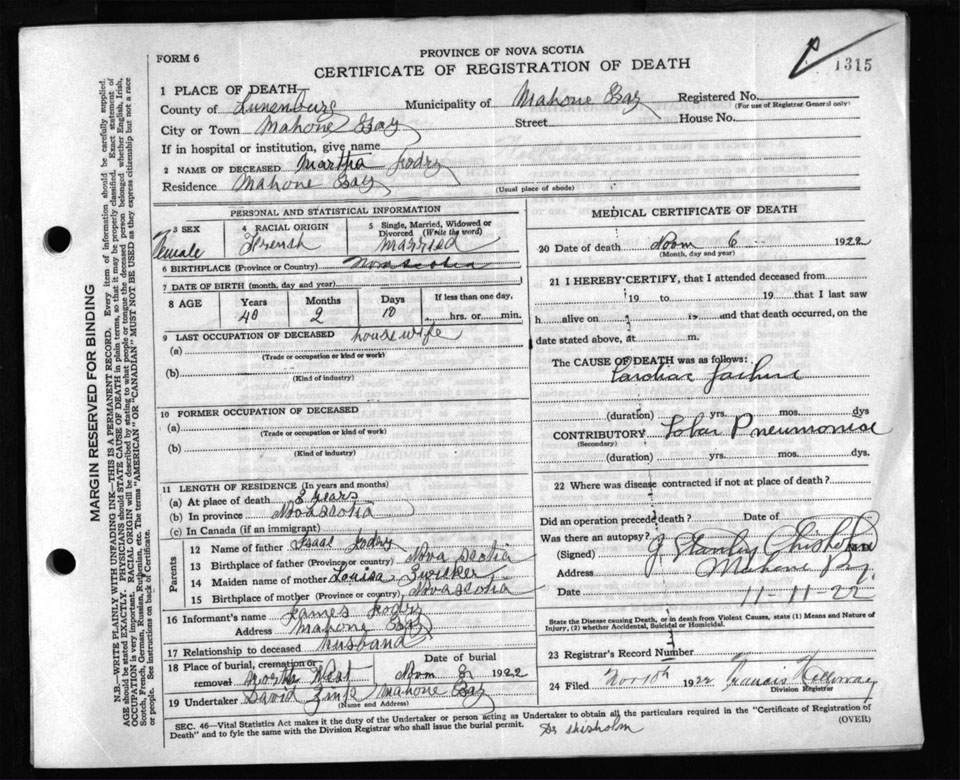 FORM 6
PROVINCE OF NOVA SCOTIA
CERTIFICATE OF REGISTRATION OF DEATH
1315
1 PLACE OF DEATH
County of Lunenburg Municipality of Mahone Bay Registered No.
(For use of Registrar General only)
City or Town Mahone Bay Street House No.
If in hospital or institution, give name
2 NAME OF DECEASED Martha
Residence Mahone Bay
(Usual place of abode)
PERSONAL AND STATISTICAL INFORMATION
3 SEX 4 RACIAL ORIGIN 5 Single, Married, Widowed or Divorced (Write the word)
Female French Married
6 BIRTHPLACE (Province or Country) Nova Scotia
7 DATE OF BIRTH (month, day and year)
8 AGE Years Months Days If less than one day,
40 2 10 hrs. or min.
9 LAST OCCUPATION OF DECEASED housewife
(a)
(Trade or occupation or kind or work)
(b)
(Kind of industry)
10 FORMER OCCUPATION OF DECEASED
(a)
(Trade or occupation or kind or work)
(b)
(Kind of industry)
11 LENGTH OF RESIDENCE (In years and months)
(a) At place of death 3 years
(b) In province Nova Scotia
(c) In Canada (if an immigrant)
Parents
12 Name of father Isaac
13 Birthplace of father (Province or Country) Nova Scotia
14 Maiden name of mother Louisa Zwicker
15 Birthplace of mother (Province or Country) Nova Scotia
16 Informant's name James
Address Mahone Bay
17 Relationship to deceased husband
18 Place of burial, cremation or removal North West Date of burial Novm 8 1922
19 Undertaker David Zink Mahone Bay
(Name and Address)
MEDICAL CERTIFICATE OF DEATH
20 Date of death Novm 6 1922
(Month, day and year)
21 I HEREBY CERTIFY, that I attended deceased from
19 to 19 that I last saw
h alive on 19 and that death occurred, on
date stated above, at m.
The CAUSE OF DEATH was as follows:
Cardiac failure
(duration) yrs. mos. dys
CONTRIBUTORY Lobar Pneumonia
(Secondary)
(duration) yrs. mos. dys.
22 Where was disease contracted if not at place of death?
Did an operation precede death? Date of
Was there an autopsy?
(Signed) J Stanley Chisholm
Address Mahone Bay
Date 11-11-22
State the Disease causing Death, or in death from Violent Causes, state (1) Means and Nature of Injury, (2) whether Accidental, Suicidal or Homicidal.
23 Registrar's Record Number
24 Filed Nov 1922 Francis
Division Registrar
SEC. 46—Vital Statistics Act makes it the duty of the Undertaker or person acting as Undertaker to obtain all the particulars required in the "Certificate of Registration of
Death" and to fyle the same with the Division Registrar who shall issue the burial permit.
(OVER)
Dr Chisholm
MARGIN RESERVED FOR BINDING
N.B.—WRITE PLAINLY WITH UNFADING INK—THIS IS A PERMANENT RECORD. Every item of information should be carefully supplied.
AGE should be stated EXACTLY. PHYSICIANS should STATE CAUSE OF DEATH in plain terms, so that it may be properly classified. Exact statement of
OCCUPATION is very important. RACIAL ORIGIN will be described by stating to what people or tongue the deceased person belonged whether English, Irish,
Scotch, French, German, Russian, Ruthenian, etc. The terms "AMERICAN" OR "CANADIAN" MUST NOT BE USED as they express citizenship but not a race
or people. See instructions on back of Certificate.